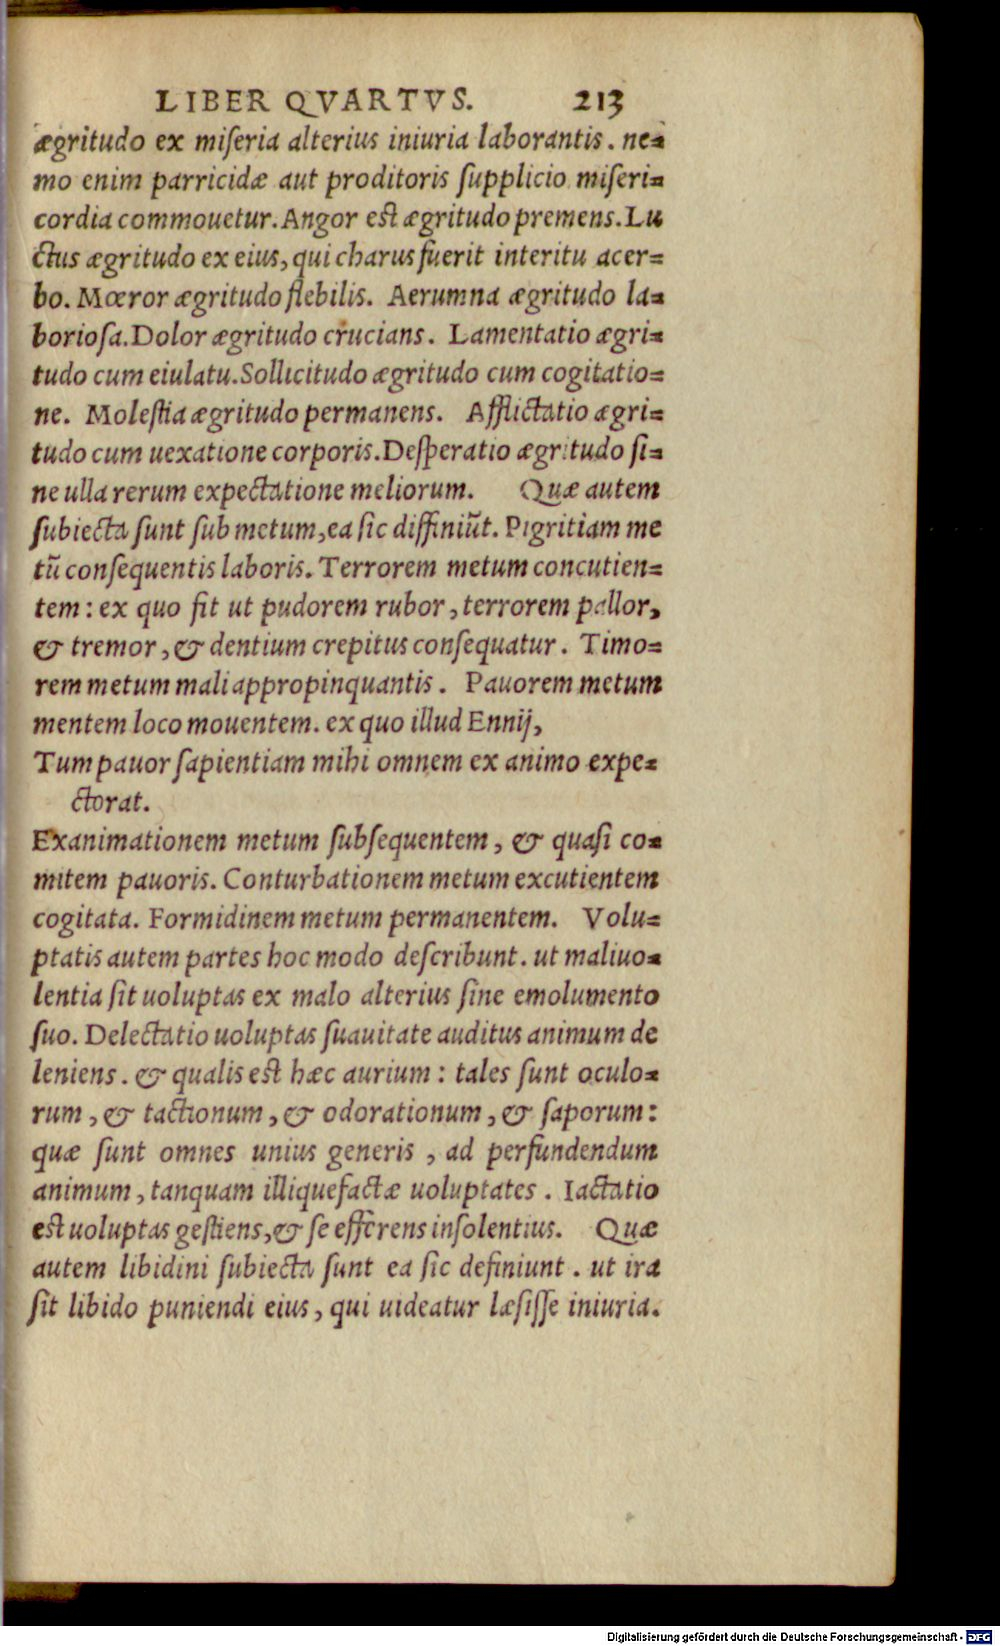 LIBER QVARTVS. 213
ægritudo ex miſeria alterius iniuria laborantis. ne=
mo enim parricidæ aut proditoris ſupplicio miſeri=
cordia commouetur. Angor est ægritudo premens. Lu
ctus ægritudo ex eius, qui charus fuerit interitu acer=
bo. Mœror ægritudo flebilis. Aerumna ægritudo la=
borioſa. Dolor ægritudo crucians. Lamentatio ægri=
tudo cum eiulatu. Sollicitudo ægritudo cum cogitatio=
ne. Moleſtia ægritudo permanens. Afflictatio ægri=
tudo cum uexatione corporis. Deſperatio ægritudo ſi=
ne ulla rerum expectatione meliorum. Quæ autem
ſubiecta ſunt ſub metum, ea ſic diffiniũt. Pigritiam me
tũ conſequentis laboris. Terrorem metum concutien=
tem: ex quo fit ut pudorem rubor, terrorem pallor,
& tremor, & dentium crepitus conſequatur. Timo=
rem metum mali appropinquantis. Pauorem metum
mentem loco mouentem. ex quo illud Ennij,
Tum pauor ſapientiam mihi omnem ex animo expe=
ctorat.
Exanimationem metum ſubſequentem, & quaſi co=
mitem pauoris. Conturbationem metum excutientem
cogitata. Formidinem metum permanentem. Volu=
ptatis autem partes hoc modo deſcribunt. ut maliuo=
lentia ſit uoluptas ex malo alterius ſine emolumento
ſuo. Delectatio uoluptas ſuauitate auditus animum de
leniens. & qualis est hæc aurium: tales ſunt oculo=
rum, & tactionum, & odorationum, & ſaporum:
quæ ſunt omnes unius generis, ad perfundendum
animum, tanquam illiquefactæ uoluptates. Iactatio
est uoluptas geſtiens, & ſe efferens inſolentius. Quæ
autem libidini ſubiecta ſunt ea ſic definiunt. ut ira
ſit libido puniendi eius, qui uideatur læſiſſe iniuria.
Digitalisierung gefördert durch die Deutsche Forschungsgemeinschaft - DFG